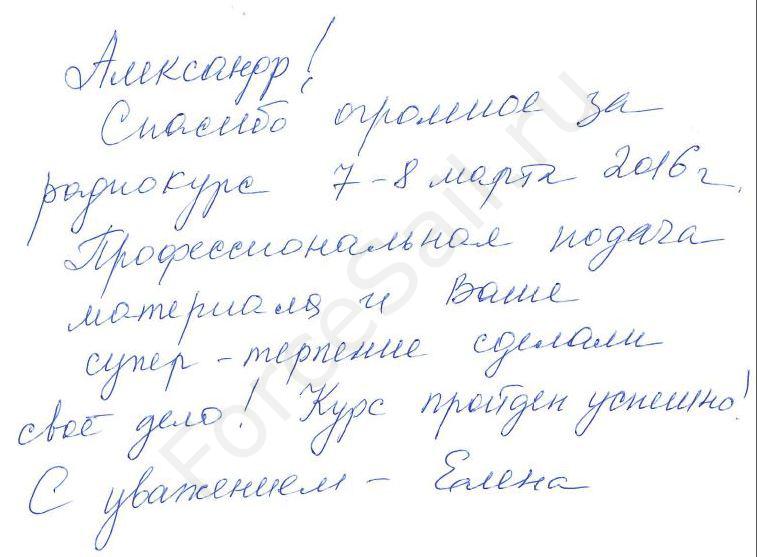 Александр!
Спасибо огромное за
радиокурс 7-8 марта 2016 г.
Профессиональная подача
материала и Ваше
супер - терпение сделали
своё дело! Курс пройден успешно!
С уважением - Елена
ForceSail.ru